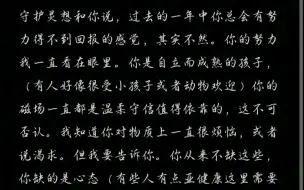 守护灵想和你说，过去的一年中你总会有努
力得不到回报的感觉，其实不然。你的努力
我一直看在眼里。你是自立而成熟的孩子，
（有人好像很受小孩子或者动物欢迎）你的
磁场一直都是温柔守信值得依靠的，这不可
否认。我知道你对物质上一直很烦恼，或者
说渴求。但我要告诉你。你从来不缺这些，
你缺的是心态（有些人有点亚健康这里需要